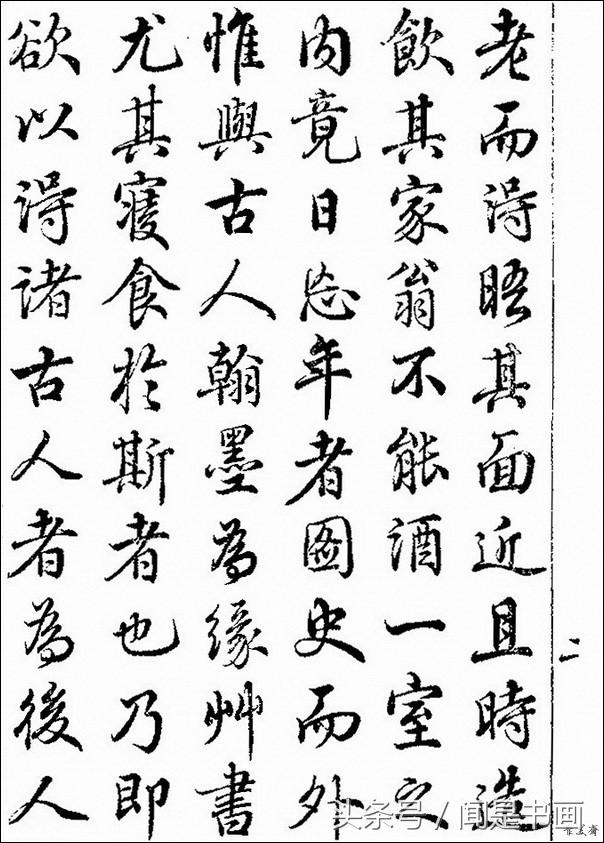 老而得晤其面近且時造
飲其家翁不能酒一室之
内竟日忘年者圖史而外
惟與古人翰墨為緣艸書
尤其寢食於斯者也乃即
欲以得諸古人者為後人
二
头条号／闻是书画